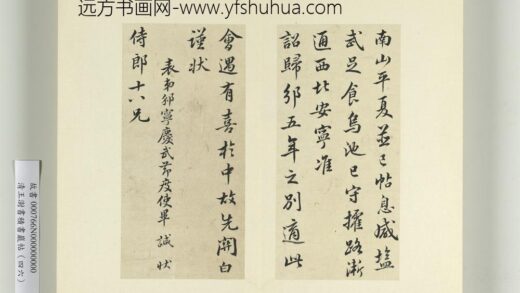 远方书画网-www.yfshuhua.com
南山平夏並已帖息咸塩
武足食烏池已守擢路漸
通西北安寧准
詔歸邠五年之別適此
會遇有喜於中故先開白
謹狀
表弟邠寧慶武節度使畢諴狀
侍郎十八兄
故書000766N000000000
清王澍書積書巖帖(四六)